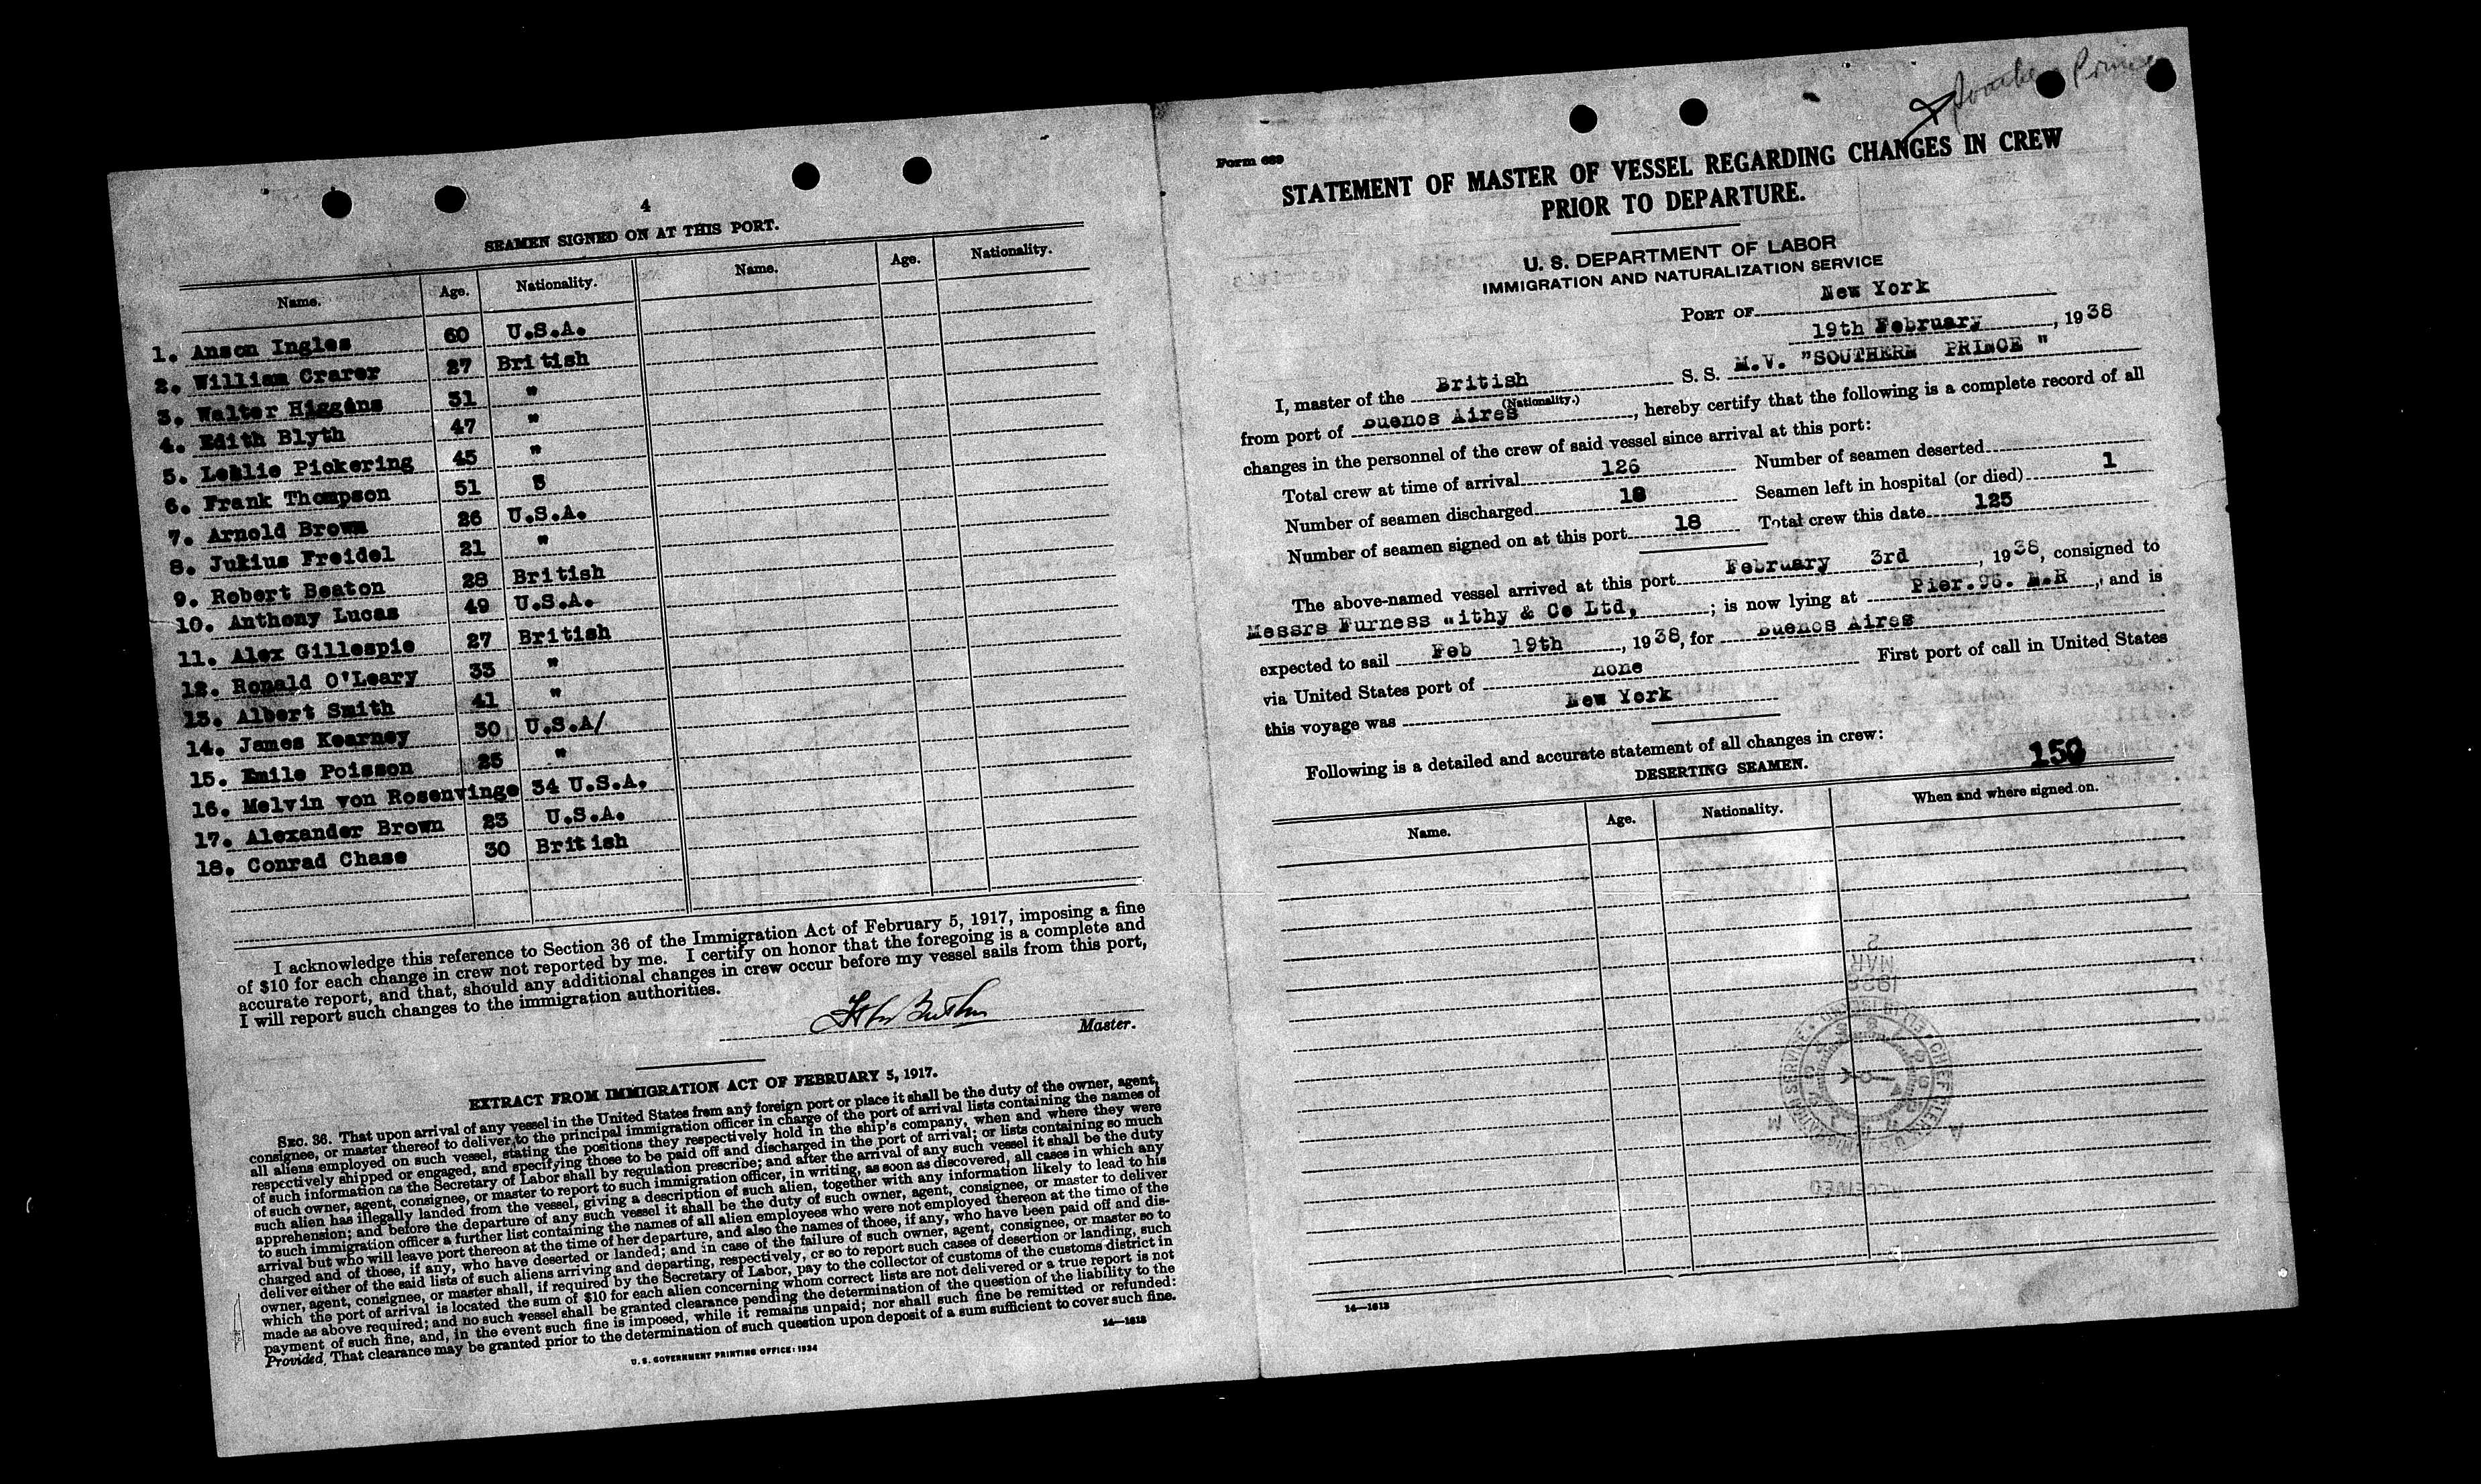 4
SEAMEN SIGNED ON AT THIS PORT.
Name. Age. Nationality. Name. Age. Nationality.
1. Anson Ingles 60 U.S.A.
2. William Crarer 27 British
3. Walter Higgins 31 "
4. Edith Blyth 47 "
5. Leslie Pickering 45 "
6. Frank Thompson 51 5
7. Arnold Brown 26 U.S.A.
8. Julius Freidel 21 "
9. Robert Beaton 28 British
10. Anthony Lucas 49 U.S.A.
11. Alex Gillespie 27 British
12. Ronald O'Leary 33 "
13. Albert Smith 41 "
14. James Kearney 30 U.S.A/
15. Emile Poisson 25 "
16. Melvin von Rosenvinge 34 U.S.A.
17. Alexander Brown 23 U.S.A.
18. Conrad Chase 30 British
I acknowledge this reference to Section 36 of the Immigration Act of February 5, 1917, imposing a fine
of $10 for each change in crew not reported by me. I certify on honor that the foregoing is a complete and
accurate report, and that, should any additional changes in crew occur before my vessel sails from this port,
I will report such changes to the immigration authorities.
Master.
EXTRACT FROM IMMIGRATION ACT OF FEBRUARY 5, 1917.
SEC. 36. That upon arrival of any vessel in the United States from any foreign port or place it shall be the duty of the owner, agent,
consignee, or master thereof to deliver to the principal immigration officer in charge of the port of arrival lists containing the names of
all aliens employed on such vessel, stating the positions they respectively hold in the ship's company, when and where they were
respectively shipped or engaged, and specifying those to be paid off and discharged in the port of arrival; or lists containing so much
of such information as the Secretary of Labor shall by regulation prescribe; and after the arrival of any such vessel it shall be the duty
of such owner, agent, consignee, or master to report to such immigration officer, in writing, as soon as discovered, all cases in which any
such alien has illegally landed from the vessel, giving a description of such alien, together with any information likely to lead to his
apprehension; and before the departure of any such vessel it shall be the duty of such owner, agent, consignee, or master to deliver
to such immigration officer a further list containing the names of all alien employees who were not employed thereon at the time of the
arrival but who will leave port thereon at the time of her departure, and also the names of those, if any, who have been paid off and dis-
charged and of those, if any, who have deserted or landed; and in case of the failure of such owner, agent, consignee, or master so to
deliver either of the said lists of such aliens arriving and departing, respectively, or so to report such cases of desertion or landing, such
owner, agent, consignee, or master shall, if required by the Secretary of Labor, pay to the collector of customs of the customs district in
which the port of arrival is located the sum of $10 for each alien concerning whom correct lists are not delivered or a true report is not
made as above required; and no such vessel shall be granted clearance pending the determination of the question of the liability to the
payment of such fine, and, in the event such fine is imposed, while it remains unpaid; nor shall such fine be remitted or refunded:
Provided, That clearance may be granted prior to the determination of such question upon deposit of a sum sufficient to cover such fine.
14—1613
U. S. GOVERNMENT PRINTING OFFICE: 1934
Prince
Form 689
STATEMENT OF MASTER OF VESSEL REGARDING CHANGES IN CREW
PRIOR TO DEPARTURE.
U. S. DEPARTMENT OF LABOR
IMMIGRATION AND NATURALIZATION SERVICE
PORT OF New York
19th February, 1938
I, master of the British S. S. M.V. "SOUTHERN PRINCE "
(Nationality.)
from port of Buenos Aires, hereby certify that the following is a complete record of all
changes in the personnel of the crew of said vessel since arrival at this port:
Total crew at time of arrival 126 Number of seamen deserted
Number of seamen discharged 18 Seamen left in hospital (or died) 1
Number of seamen signed on at this port 18 Total crew this date 125
The above-named vessel arrived at this port February 3rd, 1938, consigned to
Messrs Furness Withy & Co Ltd, ; is now lying at Pier.96. N.R, and is
expected to sail Feb 19th, 1938, for Buenos Aires
via United States port of none First port of call in United States
this voyage was New York
Following is a detailed and accurate statement of all changes in crew:
150
DESERTING SEAMEN.
Name. Age. Nationality. When and where signed on.
2
MAR
RECEIVED
14—1613